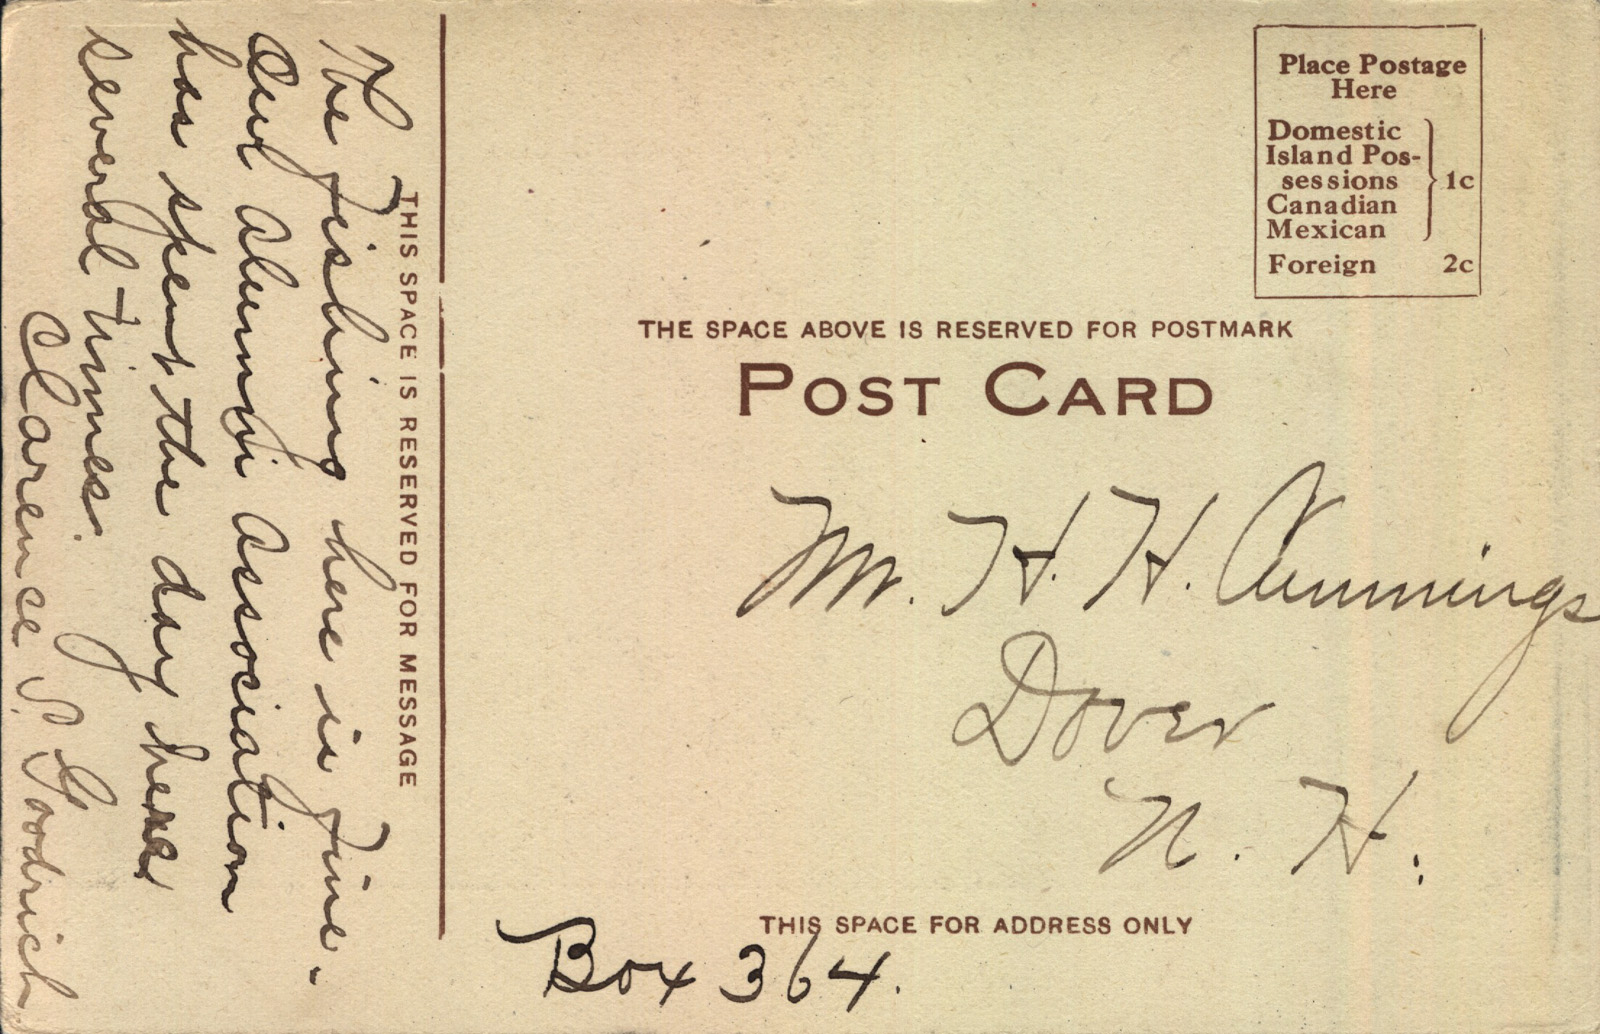 The fishing here is fine.
Our alumni association
has spent the day here
several times.
Clarence S. Goodrich
THIS SPACE IS RESERVED FOR MESSAGE
Place Postage
Here
Domestic
Island Pos-
sessions
Canadian
Mexican
1c
Foreign 2c
THE SPACE ABOVE IS RESERVED FOR POSTMARK
POST CARD
Mr. H. H. Cummings
Dover
N. H.
THIS SPACE FOR ADDRESS ONLY
Box 364.